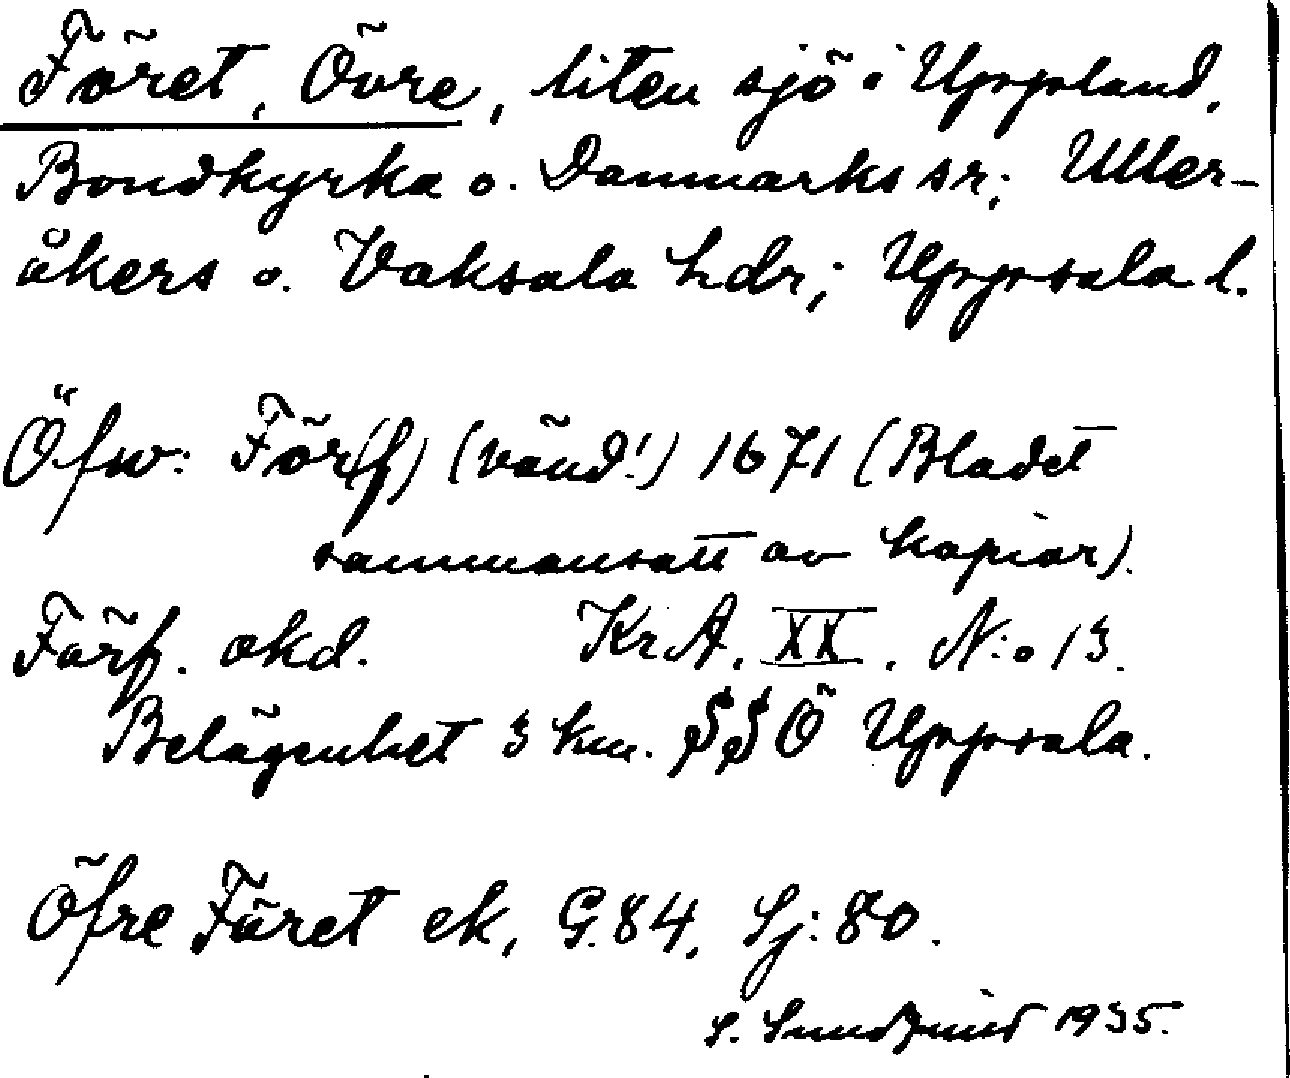 Föret, Övre, liten sjö i Uppland,
Bondkyrka o. Danmarks sr; Uller-
åkers o. Vaksala hdr; Uppsala l.
Öfw: För(f) (vänd!) 1671 (Bladet
sammansatt av kopior).
Förf. okd. KrA. XX. N:o 13.
Belägenhet 3 km. SSÖ Uppsala.
Öfre Föret ek, G.84, Sj: 80.
S. Sundqvist 1935.